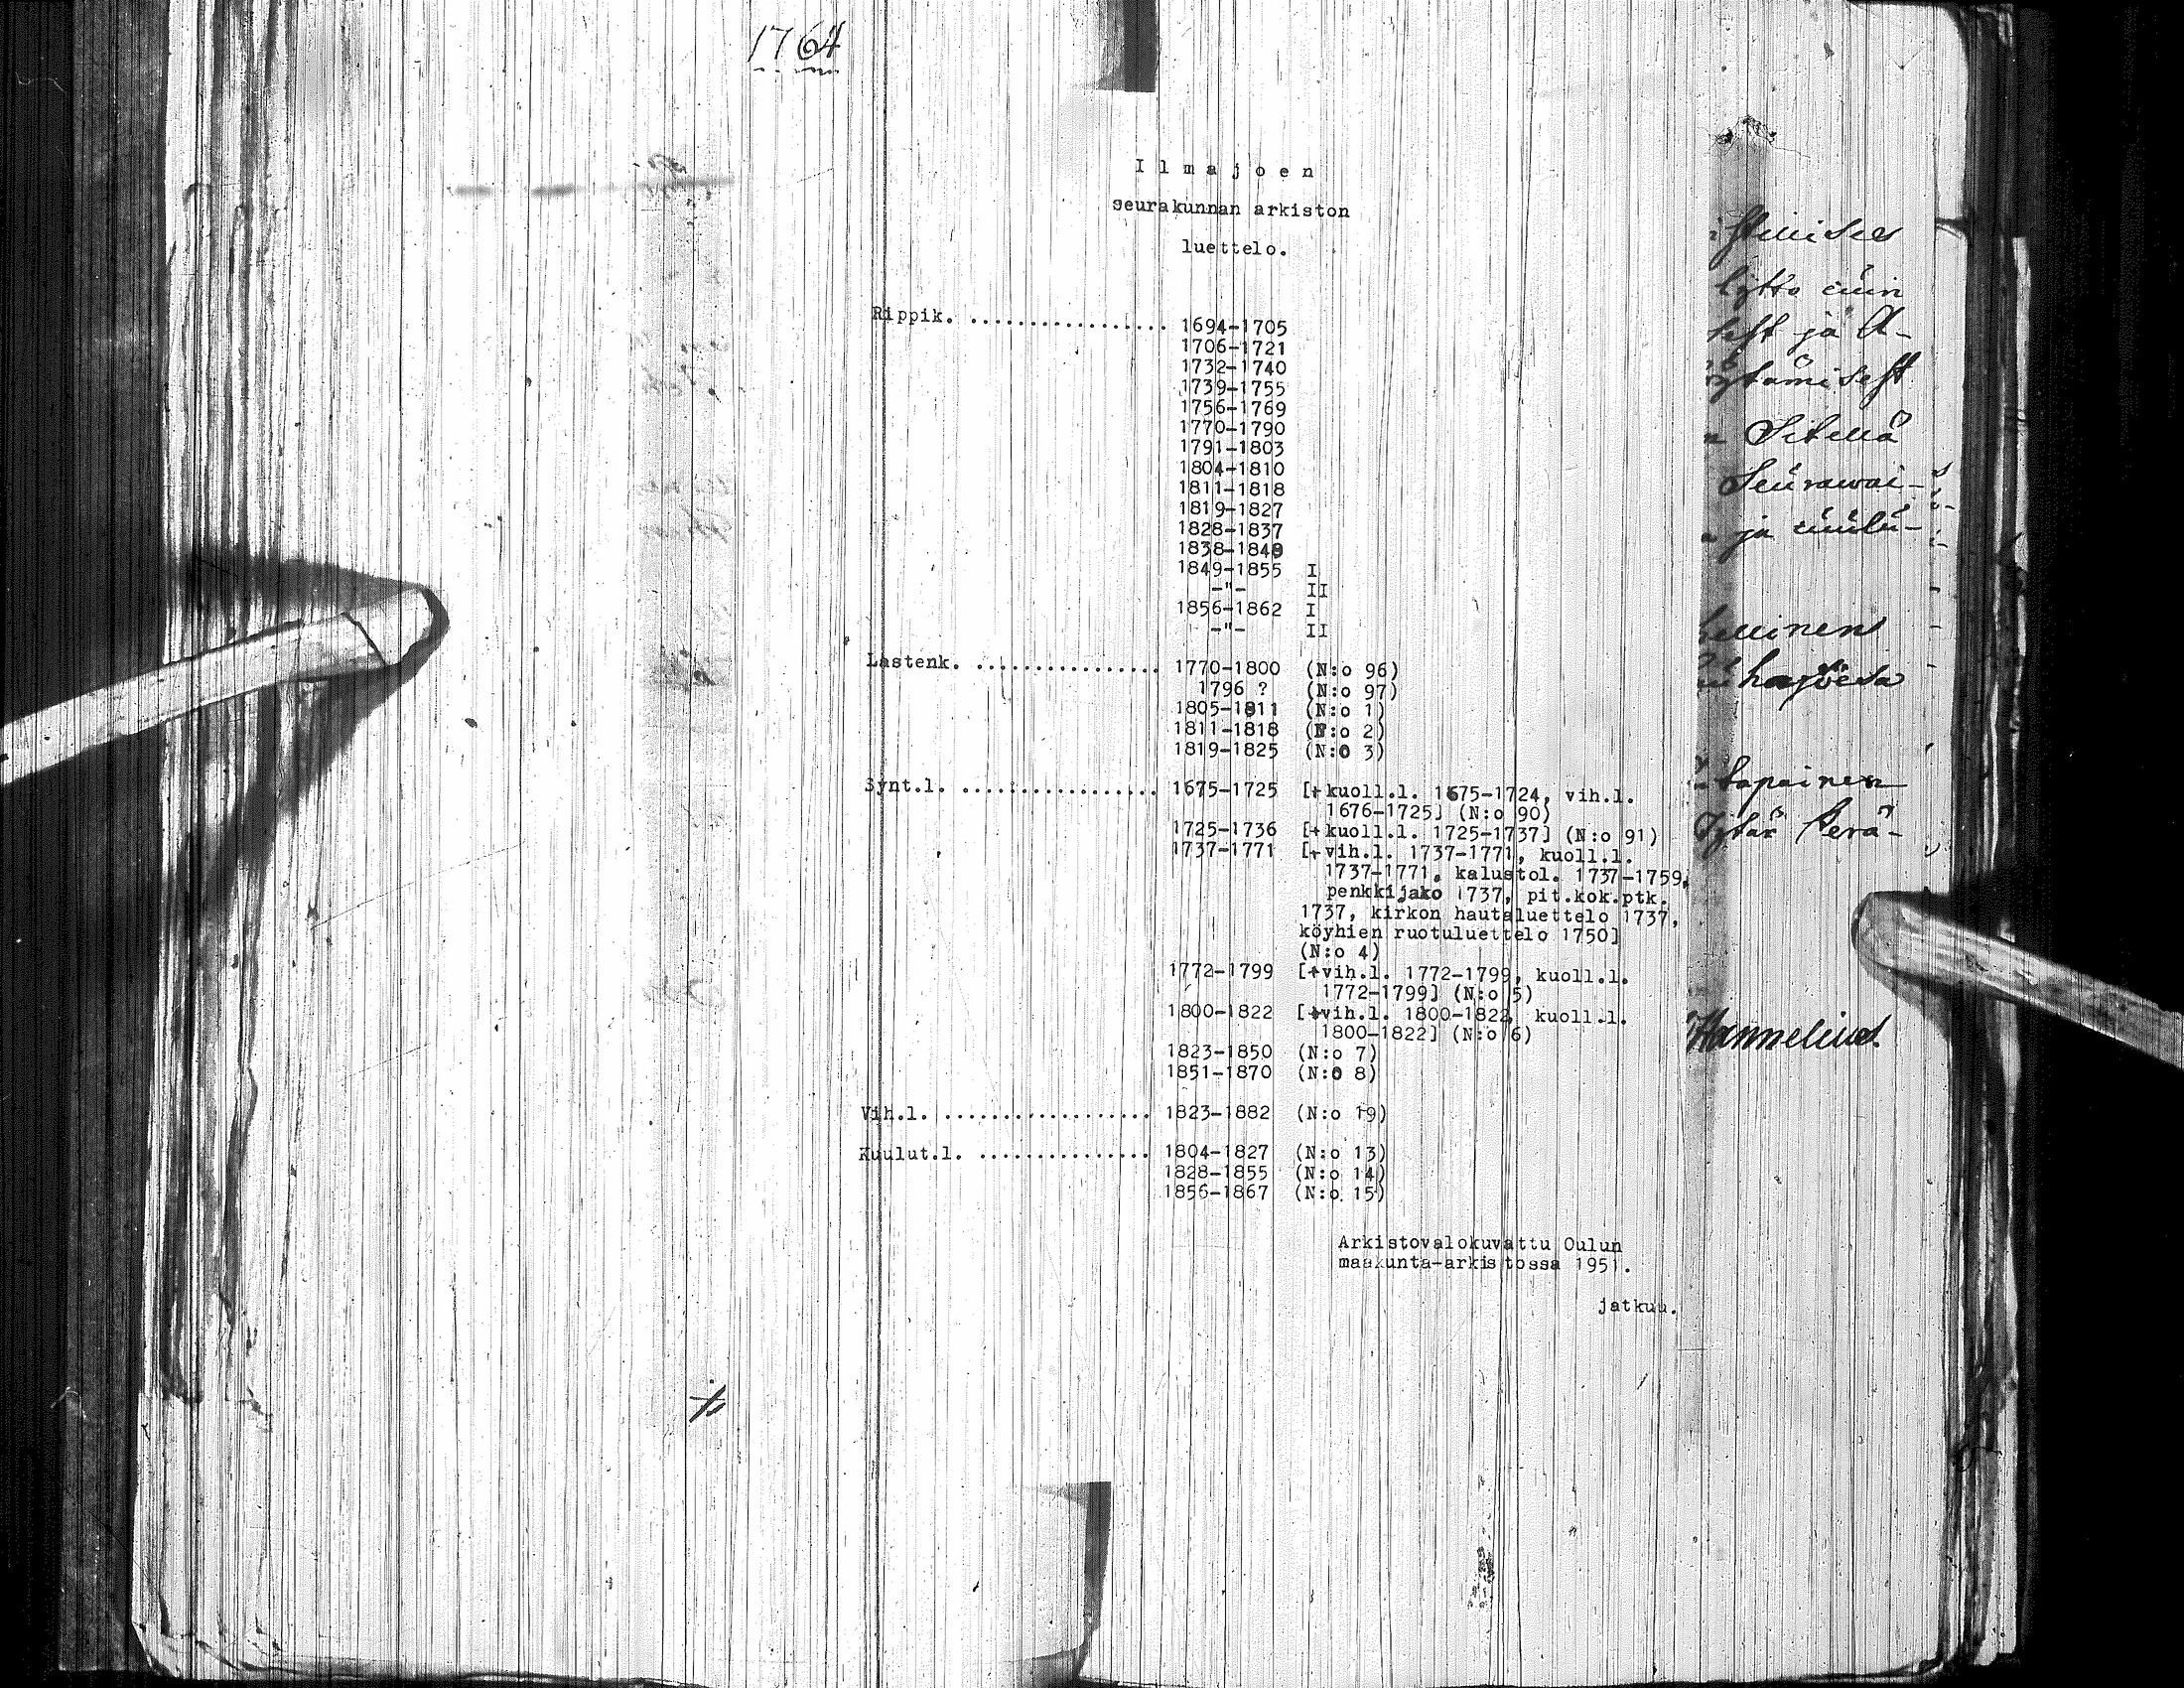 1764
Ilmajoen
seurakunnan arkiston
luettelo.
Rippik. ................. 1694-1705
1706-1721
1732-1740
1739-1755
1756-1769
1770-1790
1791-1803
1804-1810
1811-1818
1819-1827
1828-1837
1838-1848
1849-1855 I
-"- II
1856-1862 I
-"- II
Lastenk. ................ 1770-1800 (N:o 96)
1796 ? (N:o 97)
1805-1811 (N:o 1)
1811-1818 (N:o 2)
1819-1825 (N:o 3)
Synt.l. ................. 1675-1725 [+kuoll.l. 1675-1724, vih.l.
1676-1725] (N:o 90)
1725-1736 [+kuoll.l. 1725-1737] (N:o 91)
1737-1771 [+vih.l. 1737-1771, kuoll.l.
1737-1771, kalustol. 1737-1759,
penkkijako 1737, pit.kok.ptk.
1737, kirkon hautaluettelo 1737,
köyhien ruotuluettelo 1750]
(N:o 4)
1772-1799 [+vih.l. 1772-1799, kuoll.l.
1772-1799] (N:o 5)
1800-1822 [+vih.l. 1800-1822, kuoll.l.
1800-1822] (N:o 6)
1823-1850 (N:o 7)
1851-1870 (N:o 8)
Vih.l. .................. 1823-1882 (N:o 19)
Kuulut.l. ............... 1804-1827 (N:o 13)
1828-1855 (N:o 14)
1856-1867 (N:o 15)
Arkistovalokuvattu Oulun
maakunta-arkistossa 1951.
jatkuu.
ja
Seurawai-
ja
tapainen
Hannelius.